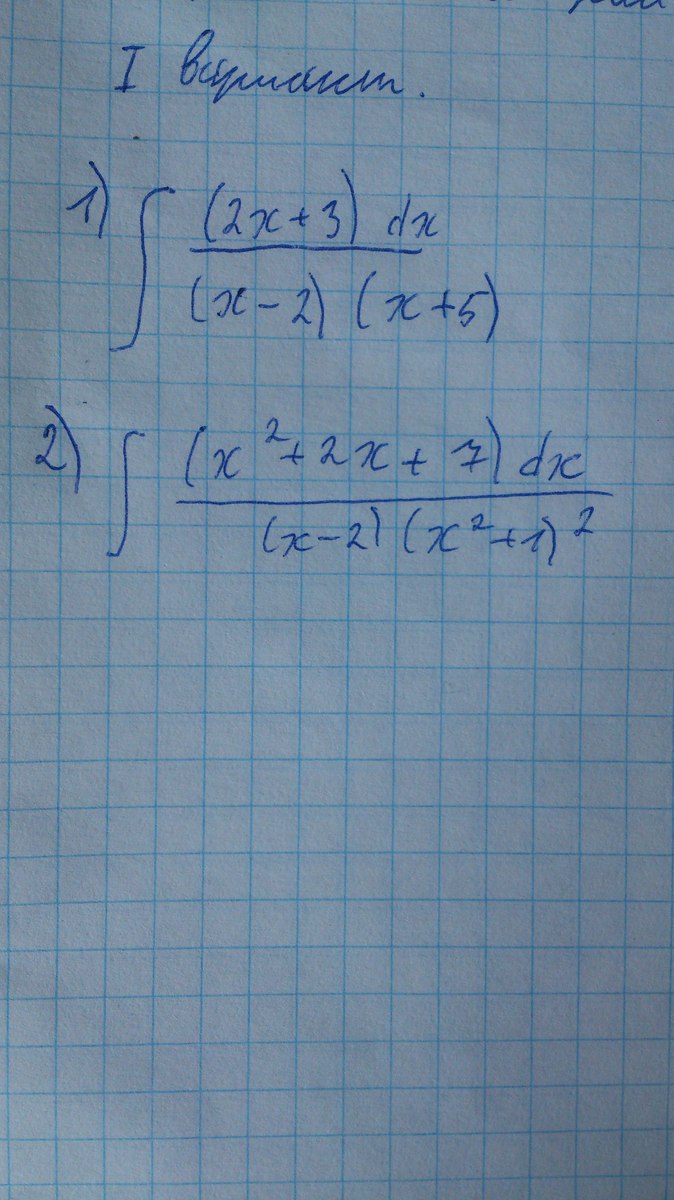 I вариант.
1) ∫ (2x+3) dx / (x-2) (x+5)
2) ∫ (x²+2x+7) dx / (x-2) (x²+1)²